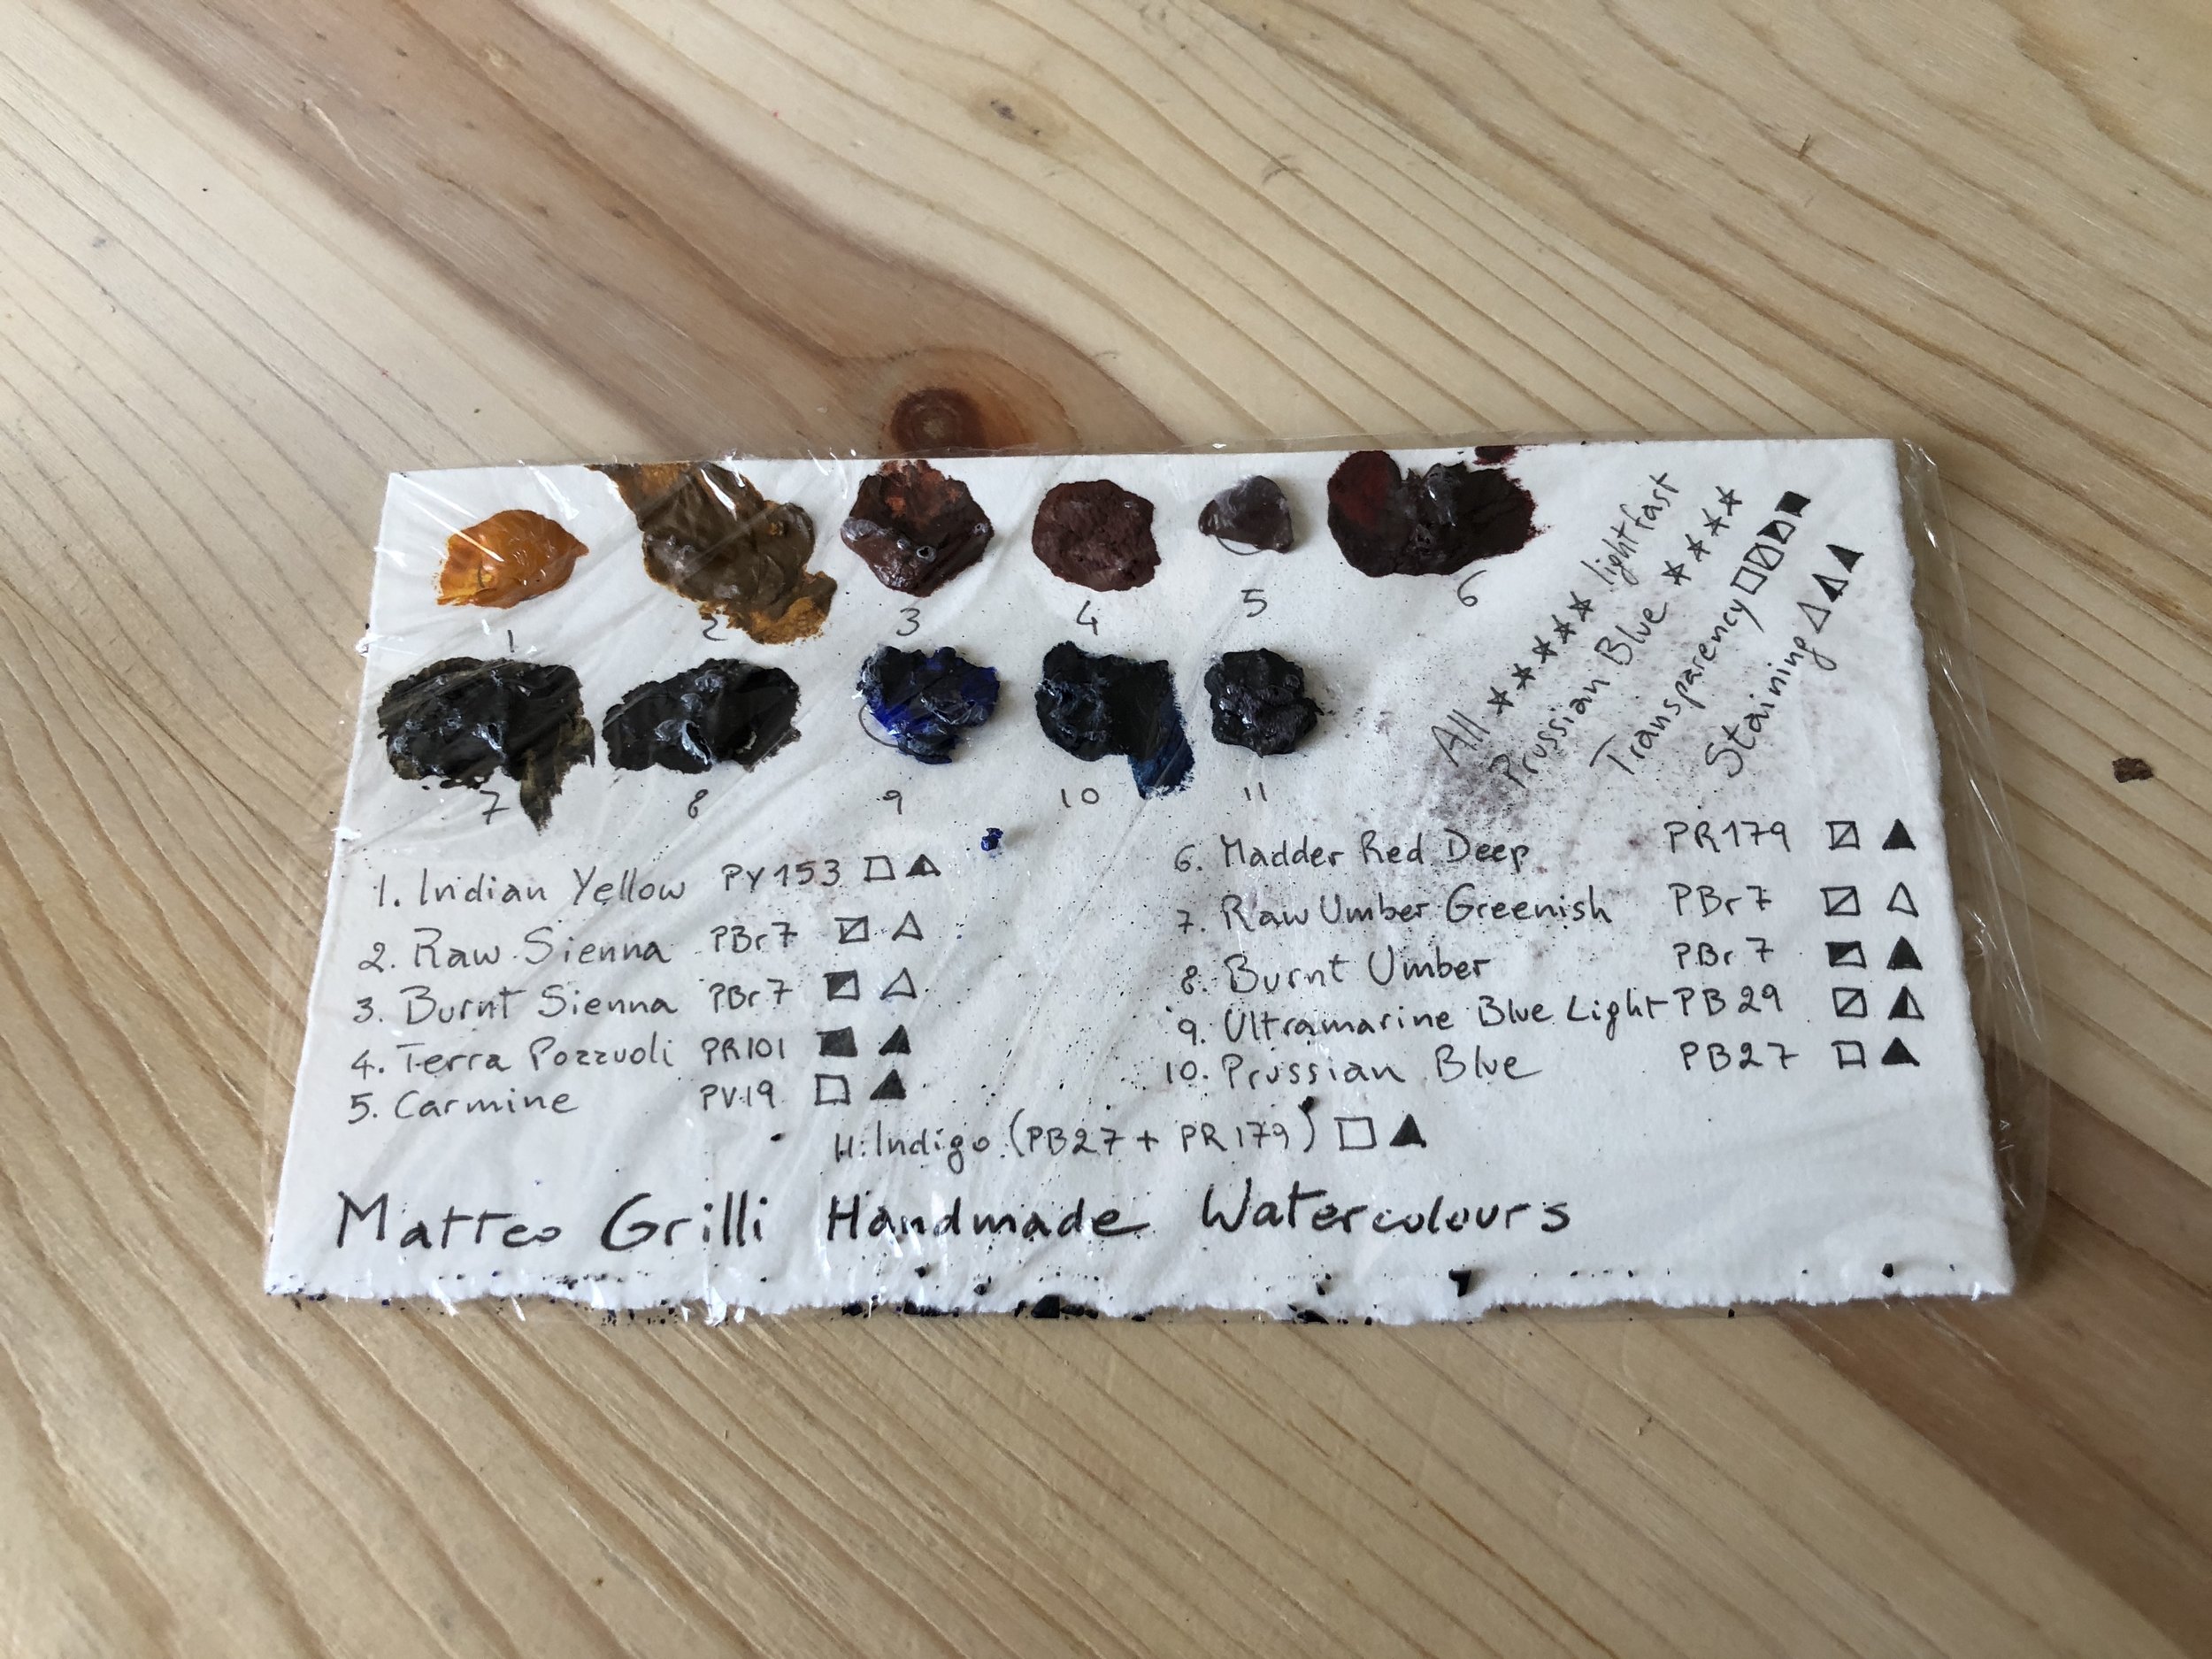 1 2 3 4 5 6
7 8 9 10 11
All ★★★★★ lightfast
Prussian Blue ★★★★
Transparency □ ⧄ ◪ ■
Staining △ ◮ ▲
1. Indian Yellow PY153 □ ◮
2. Raw Sienna PBr7 ⧄ △
3. Burnt Sienna PBr7 ◪ △
4. Terra Pozzuoli PR101 ■ ▲
5. Carmine PV19 □ ▲
6. Madder Red Deep PR179 ⧄ ▲
7. Raw Umber Greenish PBr7 ⧄ △
8. Burnt Umber PBr7 ◪ ▲
9. Ultramarine Blue Light PB29 ⧄ ◮
10. Prussian Blue PB27 □ ▲
11. Indigo (PB27 + PR179) □ ▲
Matteo Grilli Handmade Watercolours